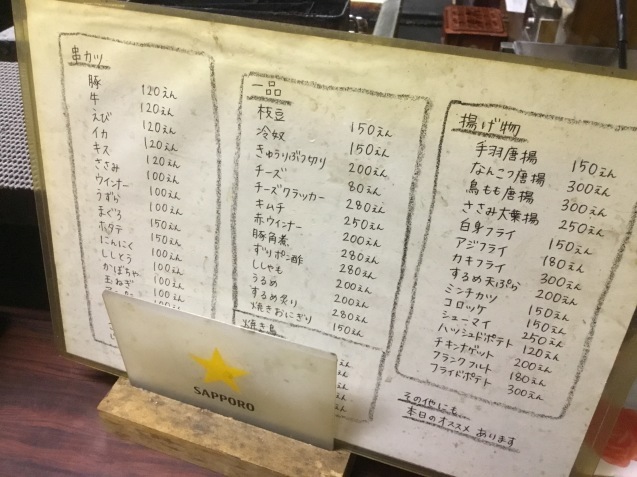 串カツ
豚 120えん
牛 120えん
えび 120えん
イカ 120えん
キス 120えん
ささみ 100えん
ウインナー 100えん
うずら 100えん
まぐろ 150えん
ホタテ 150えん
にんにく 100えん
ししとう 100えん
かぼちゃ 100えん
玉ねぎ 100えん
一品
枝豆 150えん
冷奴 150えん
きゅうりぶつ切り 200えん
チーズ 80えん
チーズクラッカー 280えん
キムチ 250えん
赤ウインナー 200えん
豚角煮 280えん
ずりポン酢 280えん
ししゃも 200えん
うるめ 200えん
するめ炙り 280えん
焼きおにぎり 150えん
焼き鳥
揚げ物
手羽唐揚 150えん
なんこつ唐揚 300えん
鳥もも唐揚 300えん
ささみ大葉揚 250えん
白身フライ 150えん
アジフライ 180えん
カキフライ 300えん
するめ天ぷら 200えん
ミンチカツ 150えん
コロッケ 150えん
シューマイ 250えん
ハッシュドポテト 120えん
チキンナゲット 200えん
フランクフルト 180えん
フライドポテト 300えん
その他にも
本日のオススメ あります
SAPPORO